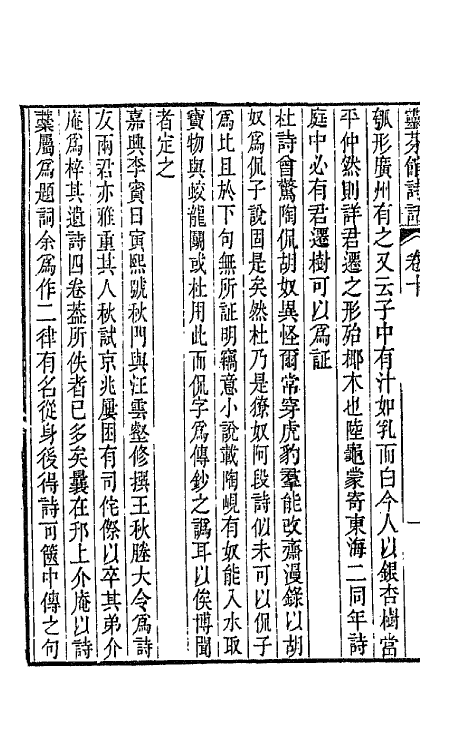 靈芬館詩話 卷十 一
瓠形廣州有之又云子中有汁如乳而白今人以銀杏樹當
平仲然則詳君遷之形殆椰木也陸龜蒙寄東海二同年詩
庭中必有君遷樹可以爲証
杜詩曾驚陶侃胡奴異怪爾常穿虎豹羣能改齋漫錄以胡
奴爲侃子說固是矣然杜乃是獠奴阿段詩似未可以侃子
爲比且於下句無所証明竊意小說載陶峴有奴能入水取
寶物與蛟龍鬭或杜用此而侃字爲傳鈔之譌耳以俟博聞
者定之
嘉興李寅日寅熙號秋門與汪雲壑修撰王秋塍大令爲詩
友兩君亦雅重其人秋試京兆屢困有司侘傺以卒其弟介
庵爲梓其遺詩四卷葢所佚者已多矣曩在邗上介庵以詩
藁屬爲題詞余爲作二律有名從身後得詩可篋中傳之句